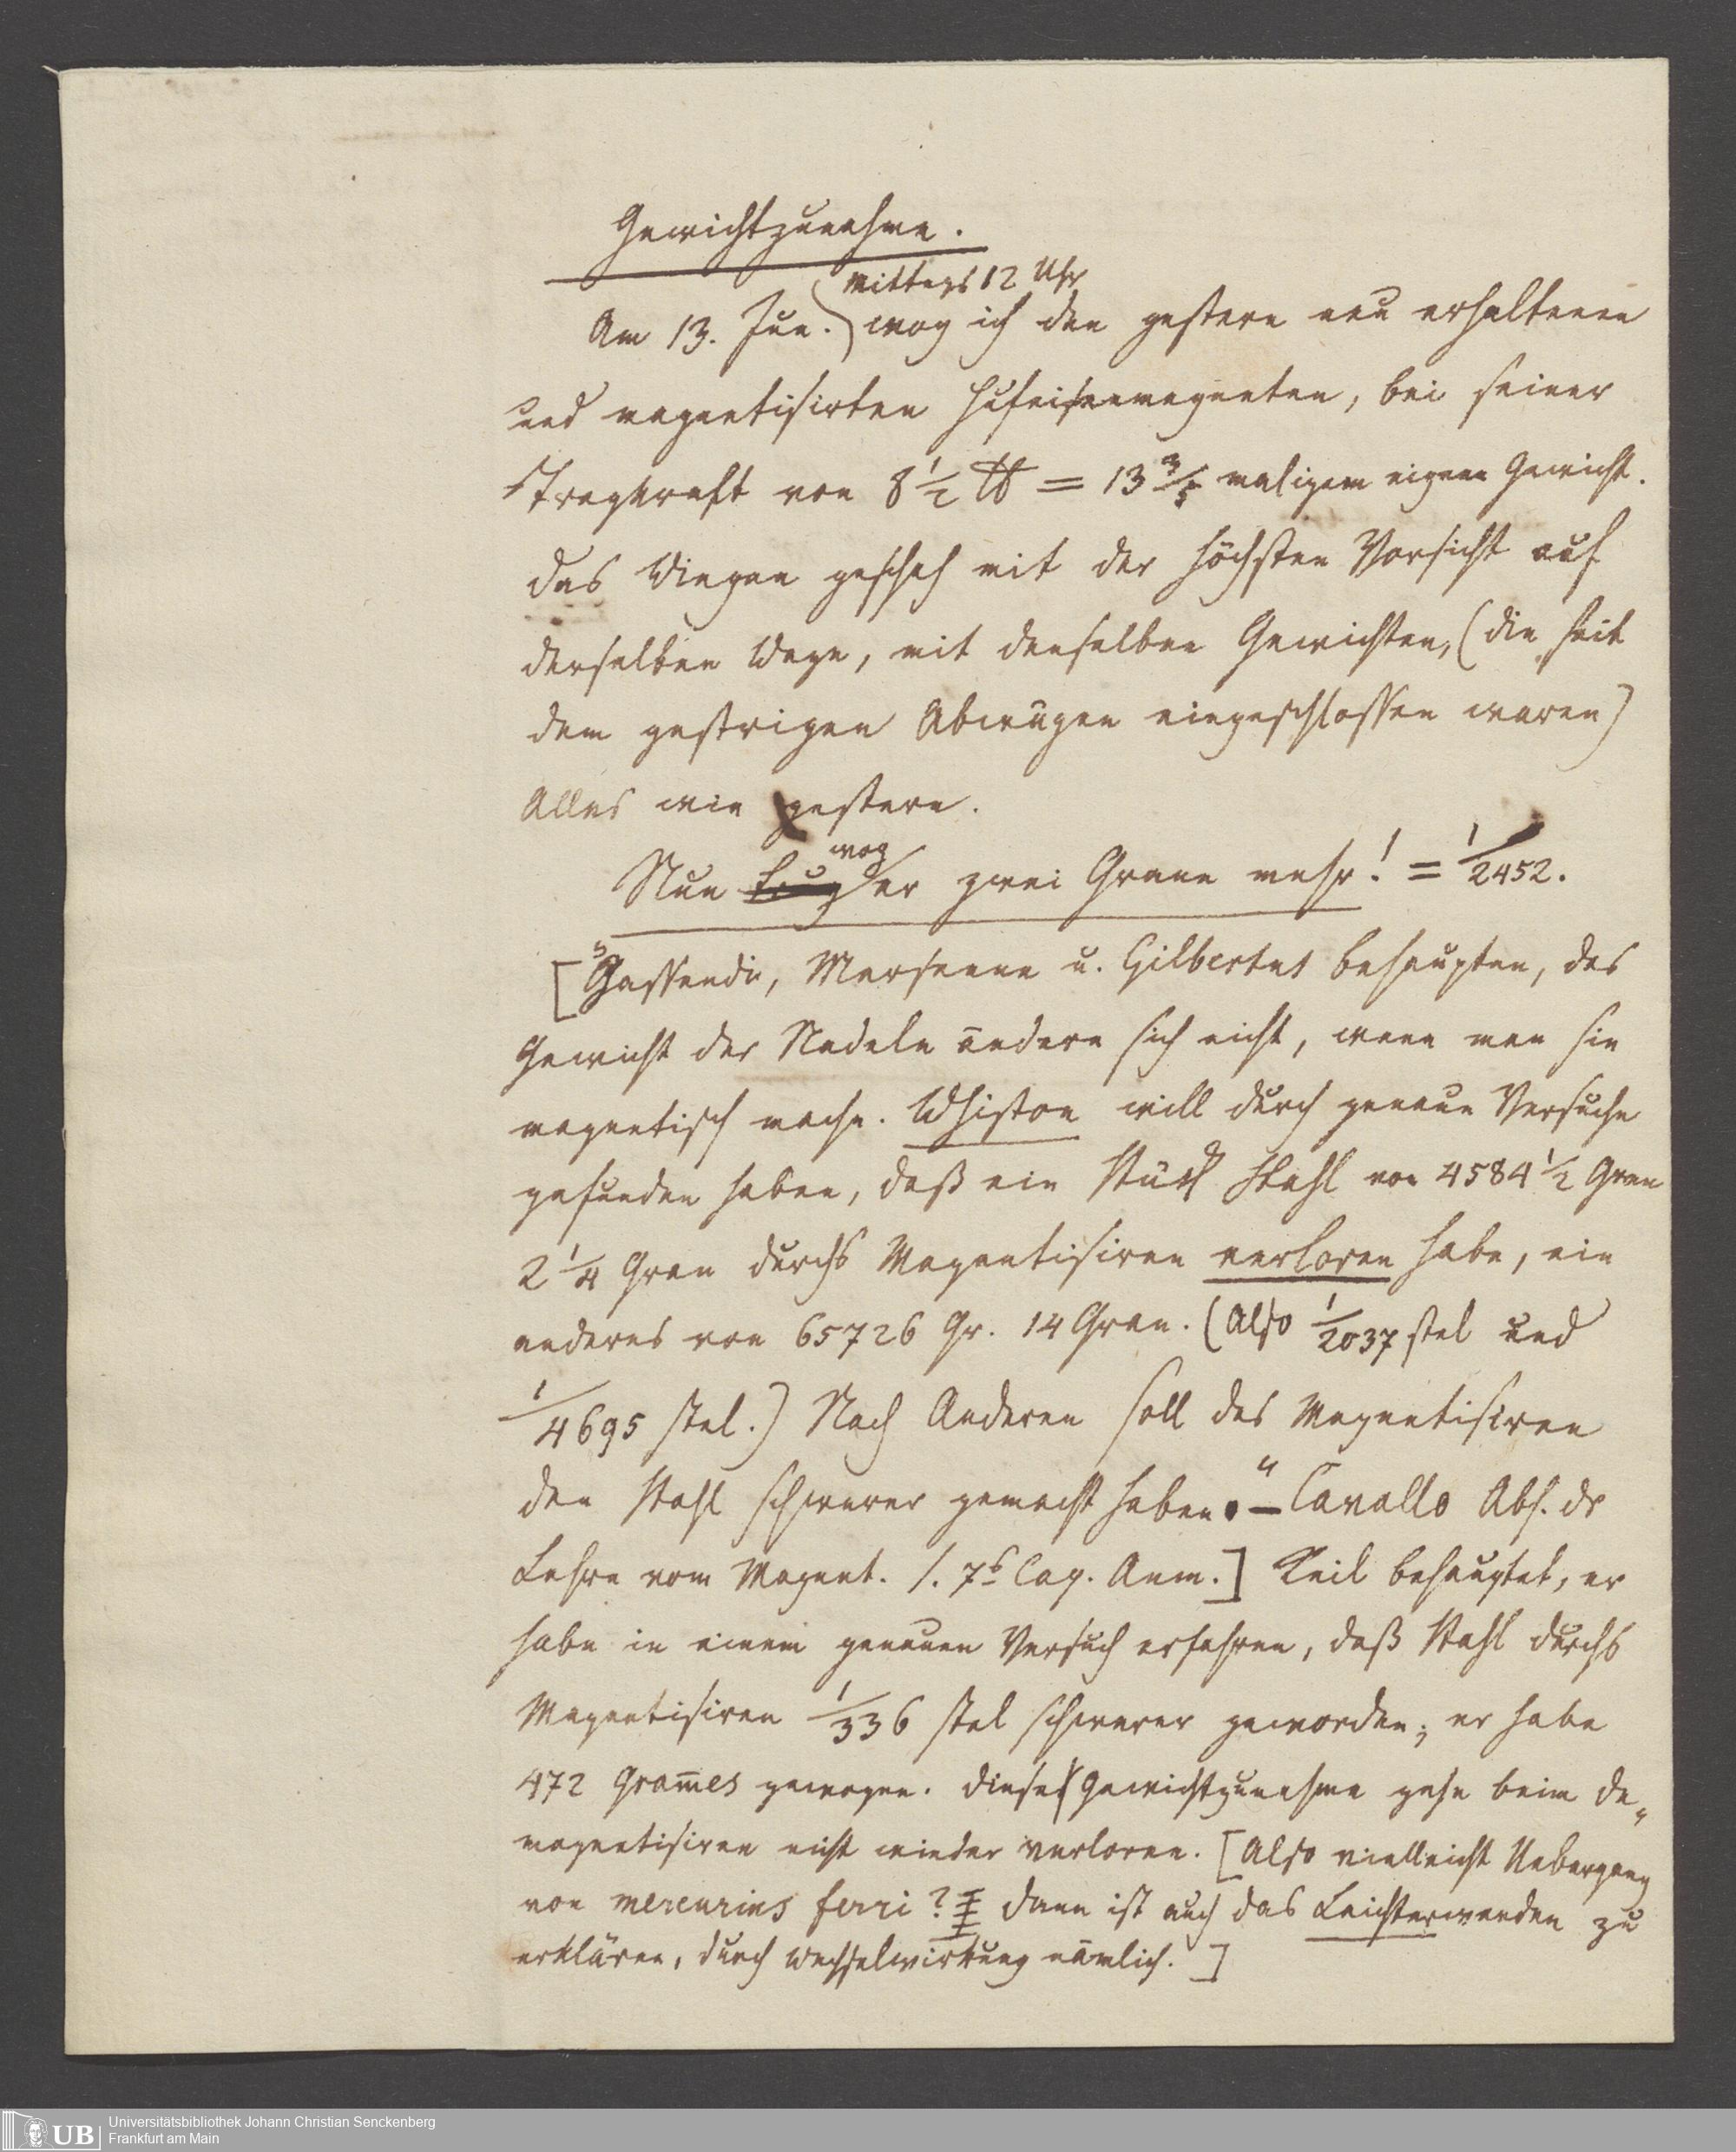 Gewichtzunahme.
mittags 12 Uhr
Am 13. Jun. wog ich den gestern neu erhaltenen
und magnetisirten Hufeisenmagneten, bei seiner
Tragkraft von 8 1/2 ℔ = 13 3/5 maligem eignen Gewicht.
das Wiegen geschah mit der höchsten Vorsicht auf
derselben Wage, mit denselben Gewichten, (die seit
dem gestrigen Abwägen eingeschlossen waren)
Alles wie gestern.
wog
Nun trug er zwei Grane mehr! = 1/2452.
["Gassendi, Mersenne u. Gilbertus behaupten, das
Gewicht der Nadeln ändere sich nicht, wenn man sie
magnetisch mache. Whiston will durch genaue Versuche
gefunden haben, daß ein Stück Stahl von 4584 1/2 Gran
2 1/4 Gran durchs Magnetisiren verloren habe, ein
anderes von 65726 Gr. 14 Gran. (Also 1/2037 stel und
1/4695 stel.) Nach Anderen soll das Magnetisiren
den Stahl schwerer gemacht haben." – Cavallo Abh. dr
Lehre vom Magnet. 1. 7s Cap. Anm.] Keil behauptet, er
habe in einem genauen Versuch erfahren, daß Stahl durchs
Magnetisiren 1/336 stel schwerer geworden; er habe
472 Gram̅es gewogen. diese Gewichtzunahme gehe beim De-
magnetisiren nicht wieder verloren. [Also vielleicht Uebergang
von mercurius ferri? dann ist auch das Leichterwerden zu
erklären, durch Wechselwirkung nämlich.]
UB
Universitätsbibliothek Johann Christian Senckenberg
Frankfurt am Main